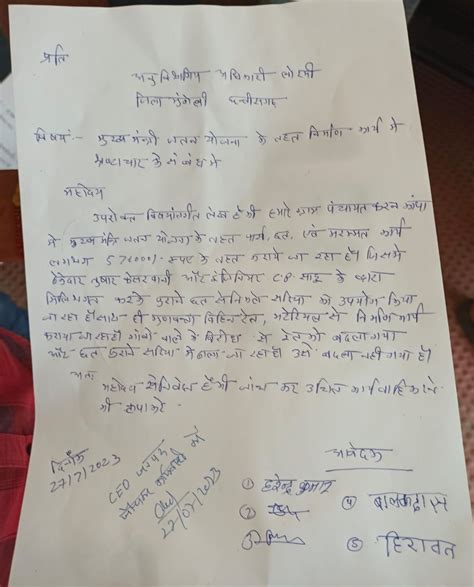 प्रति
अनुविभागिय अधिकारी लोरमी
जिला मुंगेली छत्तीसगढ़
विषय:- मुख्य मंत्री जतन योजना के तहत निर्माण कार्य में
भ्रष्टाचार के संबंध में
महोदय
उपरोक्त विषयांतर्गत लेख है की हमारे ग्राम पंचायत
में मुख्य मंत्रि जतन योजना के तहत फर्श, छत, एवं मरम्मत कार्य
लगभग 576000/- रूपए के तहत कराये जा रहा है। जिसमें
ठेकेदार तुषार केसरवानी और इंजिनियर C.P साहू के द्वारा
करके पुराने छत से निकले सरिया को उपयोग किया
जा रहा है साथ ही गुणवत्ता विहिन रेत, मटेरियल से निर्माण कार्य
कराया जा रहा है गांवो वाले के विरोध से रेत को बदला गया
और छत पुराने सरिया में ढाला जा रहा है। उसे बदला नही गया है।
अतः
महोदय से निवेदन है की जांच कर उचित कार्यवाहि करने
की कृपा करे.
दिनाँक
27/7/2023
CEO जनपद
27/07/2023
आवेदक
① हरेन्द्र कुमार
②
④ बालकदास
⑤ हिरावन